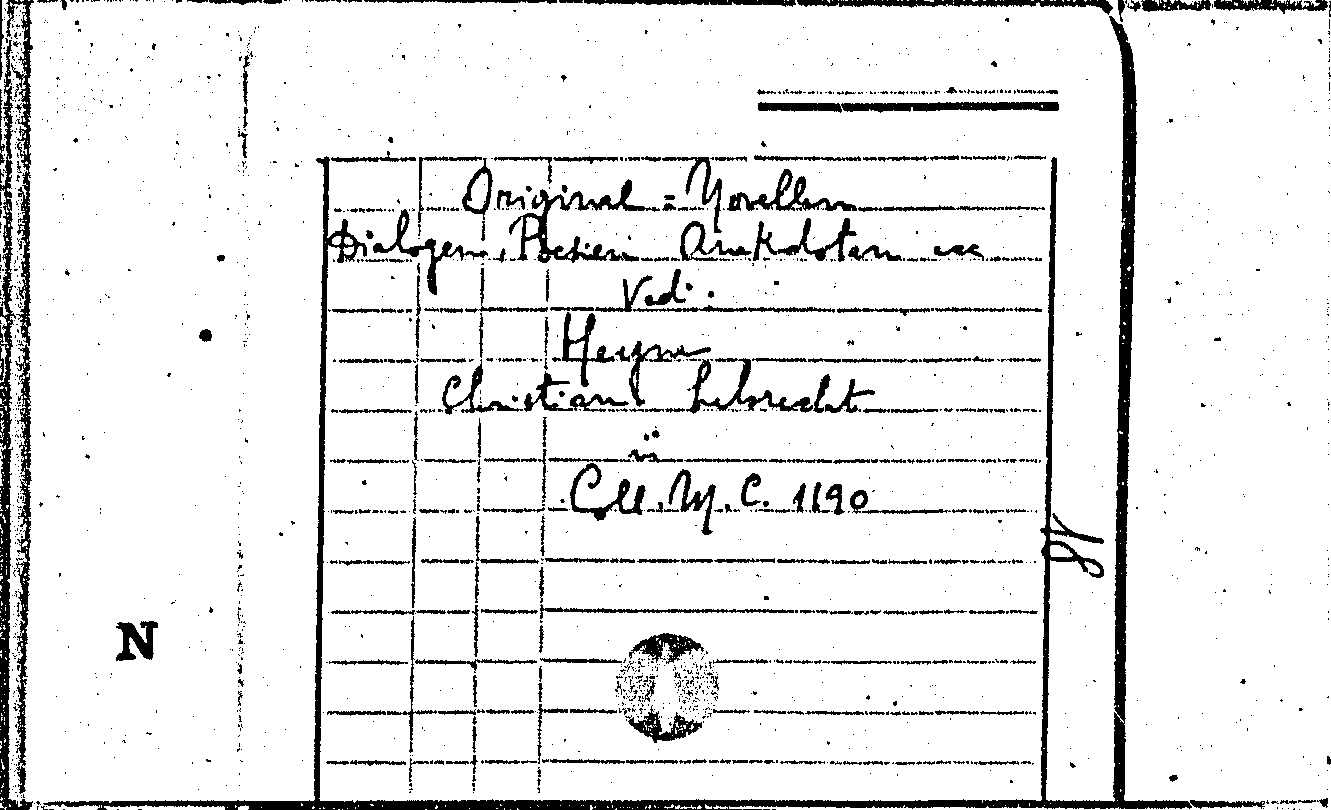 Original = Novellen
Dialogen, Poesien Anekdoten ecc
Vedi:
Heyne
Christian Lebrecht
in
Coll. M. C. 1190
N